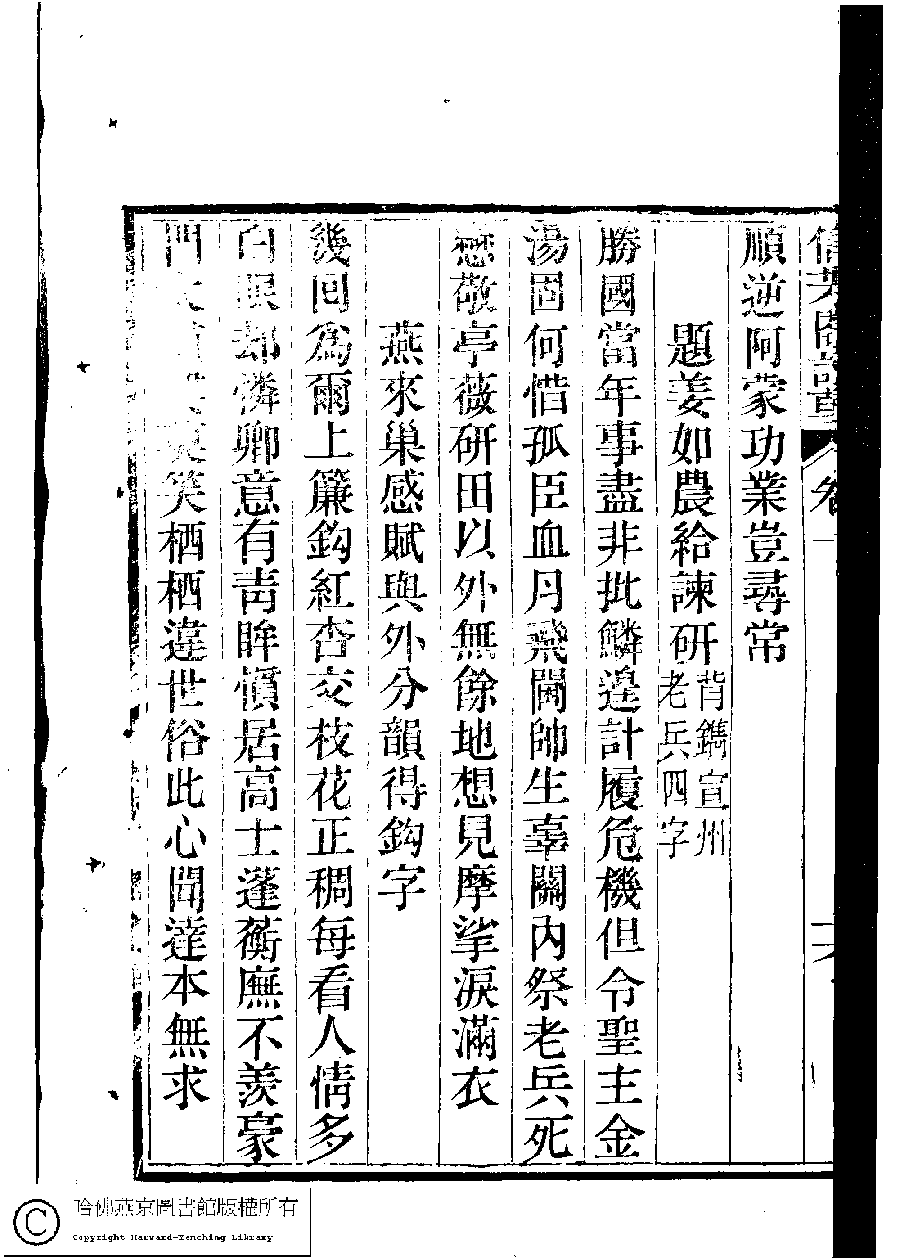 信芳閣詩草 卷一 十六
順逆阿蒙功業豈尋常
題姜如農給諫研
背鐫宣州
老兵四字
勝國當年事盡非批鱗遑計履危機但令聖主金
湯固何惜孤臣血肉飛閫帥生辜關內祭老兵死
戀敬亭薇研田以外無餘地想見摩挲淚滿衣
燕來巢感賦與外分韻得鈎字
幾回為爾上簾鈎紅杏交枝花正稠每看人情多
白眼却憐卿意有青眸慣居高士蓬蘅廡不羨豪
門笑栖栖違世俗此心聞達本無求
哈佛燕京圖書館版權所有
Copyright Harvard-Yenching Library